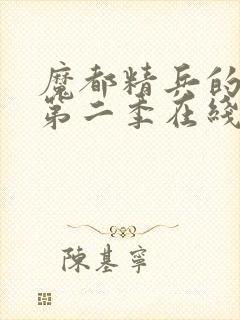 魔都精兵的
第二季在綫
陳基寧